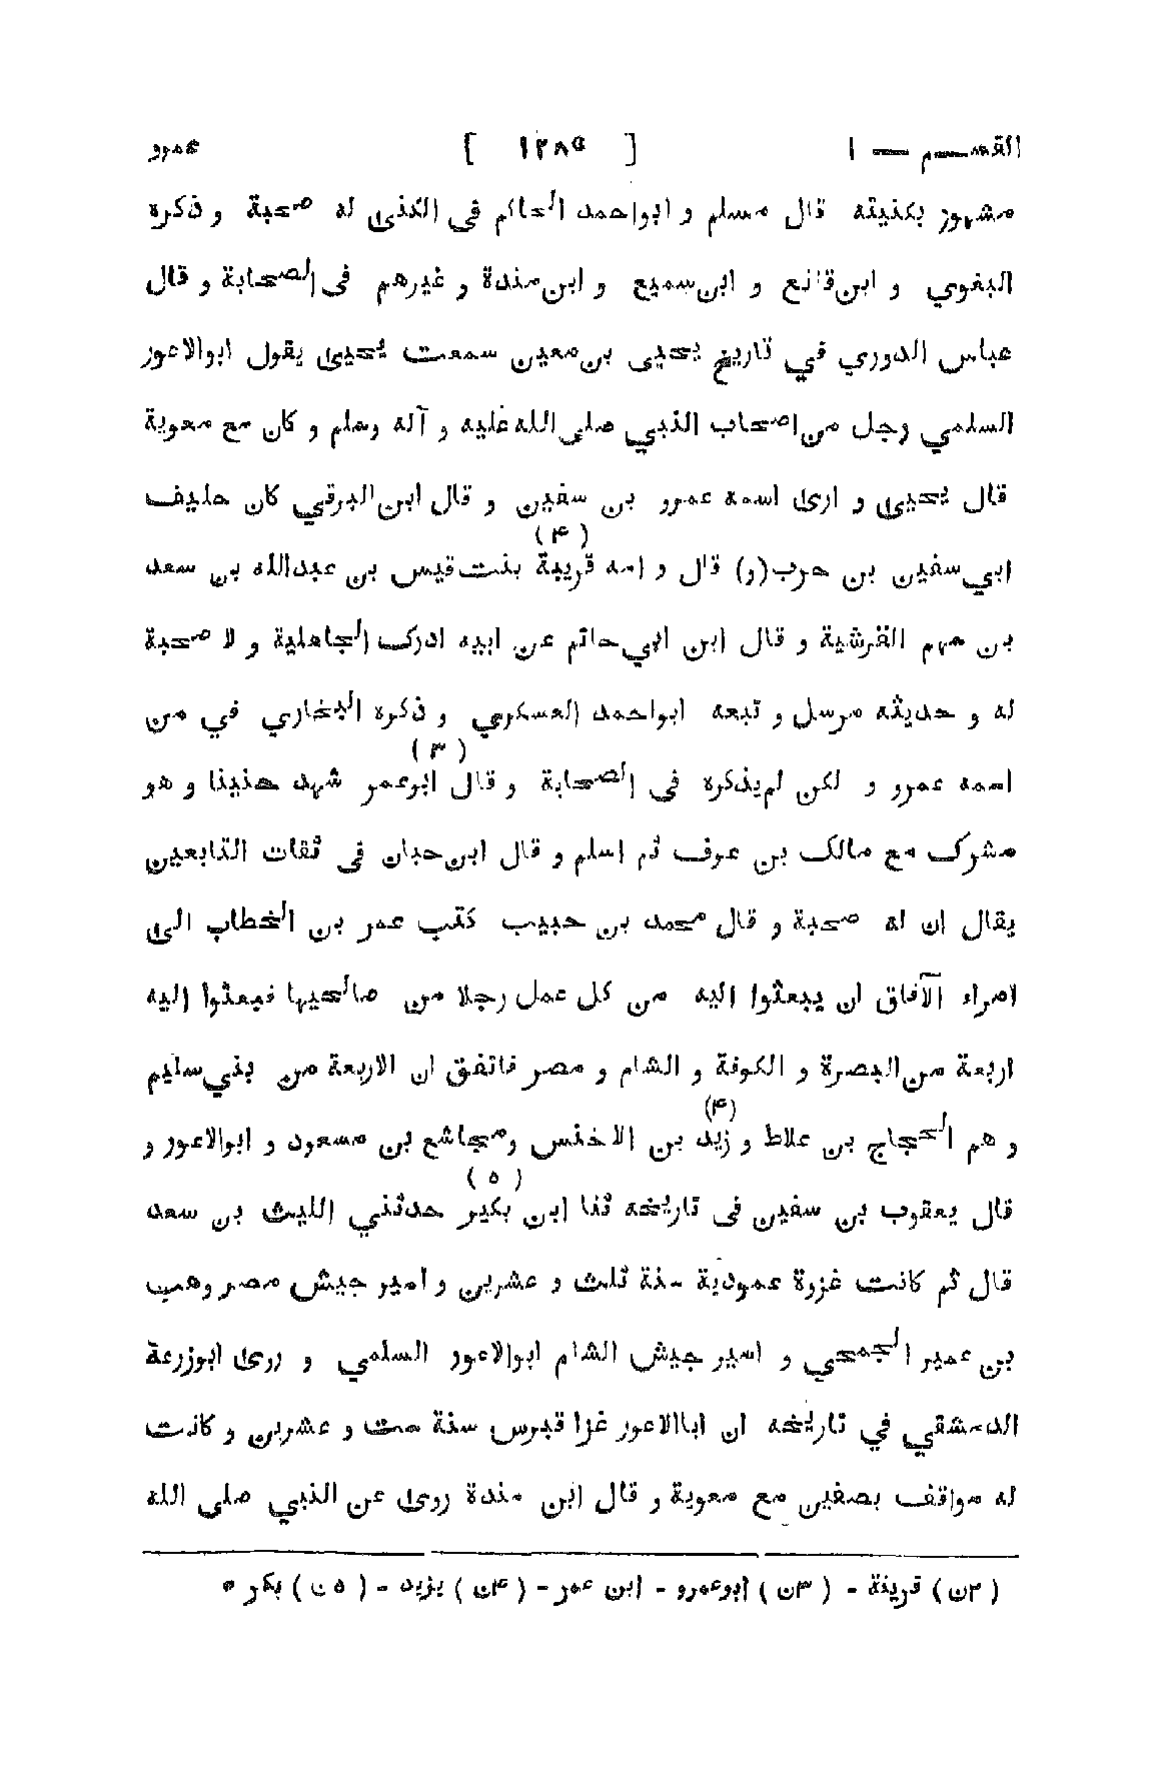 القسم — ١ [ ١٢٨٥ ] عمرو
مشهور بكنيته قال مسلم و ابواحمد الحاكم فى الكنى له صحبة و ذكره
البغوي و ابن قانع و ابن سميع و ابن مندة و غيرهم فى الصحابة و قال
عباس الدوري في تاريخ يحيى بن معين سمعت يحيى يقول ابوالاعور
السلمي رجل من اصحاب النبي صلى الله عليه و آله وسلم و كان مع معوية
قال يحيى و ارى اسمه عمرو بن سفين و قال ابن البرقي كان حليف
ابي سفين بن حرب (و) قال و امه قريبة (۴) بنت قيس بن عبدالله بن سعد
بن سهم القرشية و قال ابن ابي حاتم عن ابيه ادرك الجاهلية و لا صحبة
له و حديثه مرسل و تبعه ابواحمد العسكري و ذكره البخاري في من
اسمه عمرو و لكن لم يذكره فى الصحابة و قال ابوعمر (۳) شهد حنينا و هو
مشرك مع مالك بن عوف ثم اسلم و قال ابن حبان فى ثقات التابعين
يقال ان له صحبة و قال محمد بن حبيب كتب عمر بن الخطاب الى
امراء الآفاق ان يبعثوا اليه من كل عمل رجلا من صالحيها فبعثوا اليه
اربعة من البصرة و الكوفة و الشام و مصر فاتفق ان الاربعة من بني سليم
و هم الحجاج بن علاط و زيد (۴) بن الاخنس و مجاشع بن مسعود و ابوالاعور و
قال يعقوب بن سفين فى تاريخه ثنا ابن بكير (۵) حدثني الليث بن سعد
قال ثم كانت غزوة عمودية سنة ثلث و عشرين و امير جيش مصر وهب
بن عمير الجمحي و امير جيش الشام ابوالاعور السلمي و روى ابوزرعة
الدمشقي في تاريخه ان اباالاعور غزا قبرس سنة ست و عشرين و كانت
له مواقف بصفين مع معوية و قال ابن مندة روى عن النبي صلى الله
( ٢ن ) قرينة - ( ٣ن ) ابوعمرو - ابن عمر - ( ۴ن ) يزيد - ( ٥ن ) بكر *